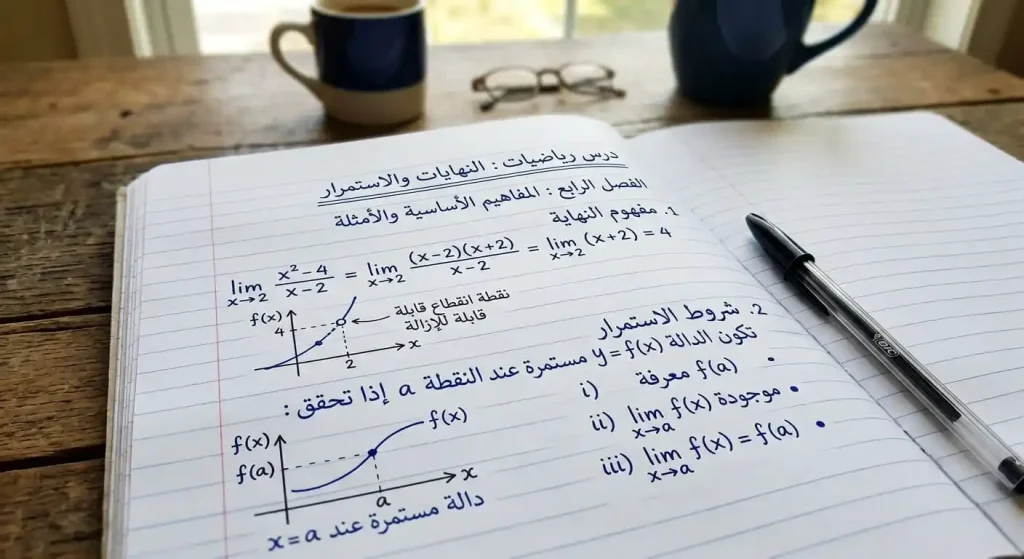 درس رياضيات : النهايات والاستمرار
الفصل الرابع : المفاهيم الأساسية والأمثلة
1. مفهوم النهاية
lim x→2 (x² − 4)/(x − 2) = lim x→2 ((x−2)(x+2))/(x−2) = lim x→2 (x+2) = 4
f(x)
4
نقطة انقطاع قابلة
قابلة للإزالة
x
2
2. شروط الاستمرار
تكون الدالة y = f(x) مستمرة عند النقطة a إذا تحقق :
i) f(a) معرفة •
ii) lim x→a f(x) موجودة •
iii) lim x→a f(x) = f(a) •
f(x)
f(a)
f(x)
x
a
دالة مستمرة عند x = a
BIC